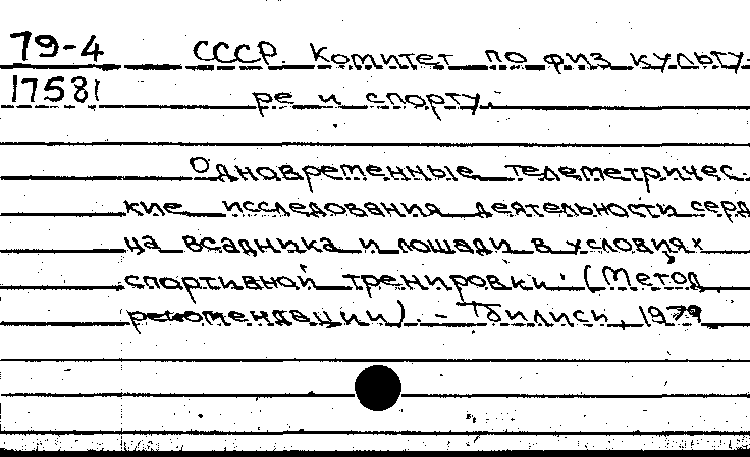 79-4 СССР. Комитет по физ культу-
17581 ре и спорту.
Одновременные телеметричес-
кие исследования деятельности серд
ца всадника и лошади в условиях
спортивной тренировки. (Метод.
рекомендации). - Тбилиси, 1979